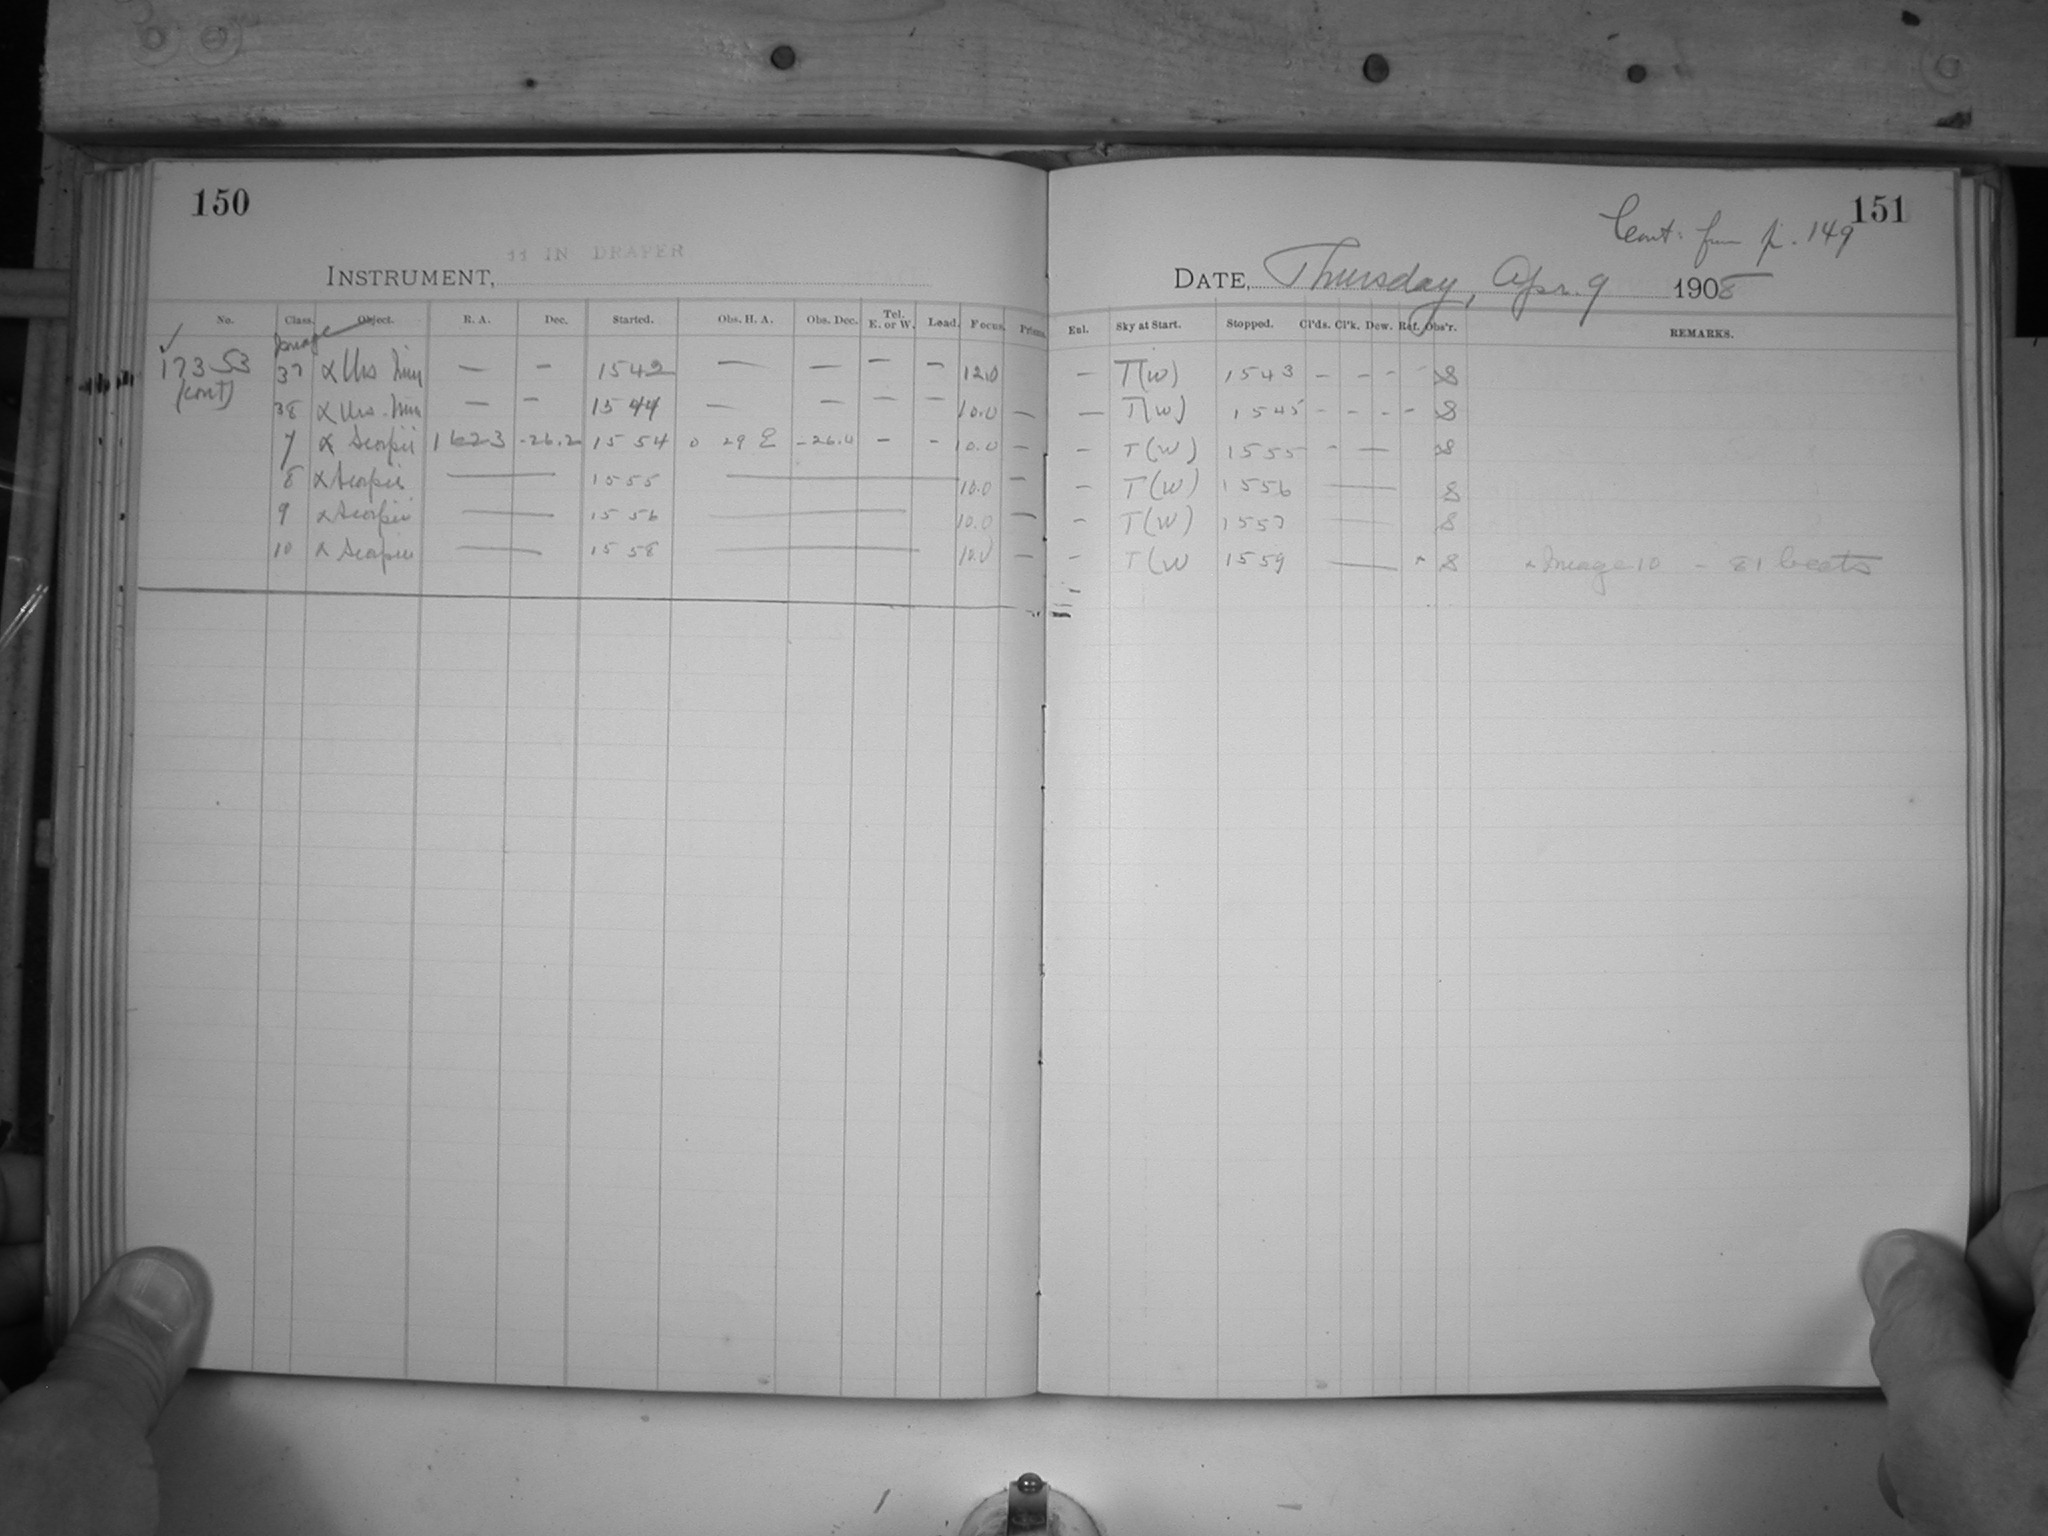 150
11 IN DRAPER
INSTRUMENT,
No. Class. Object. R. A. Dec. Started. Obs. H. A. Obs. Dec. Tel. E. or W. Load. Focus. Prisms.
Image
✓
17353 37 α Urs Min — — 1542 — — — — 12.0
(cont) 38 α Urs. Min — — 1544 — — — — 10.0 —
7 α Scorpii 1623 -26.2 1554 0 29 E -26.0 — - 10.0 —
8 α Scorpii — 1555 — 10.0 —
9 α Scorpii — 1556 — 10.0 —
10 α Scorpii — 1558 — 10.0 —
151
Cont. from p. 149
DATE, Thursday, Apr. 9 1908
Enl. Sky at Start. Stopped. Cl'ds. Cl'k. Dew. Ref. Obs'r. REMARKS.
— T(W) 1543 - - - - S
— T(W) 1545 - - - - S
- T(W) 1555 - — S
- T(W) 1556 — S
- T(W) 1557 — S
- T(W 1559 — S Image 10 - 81 beats